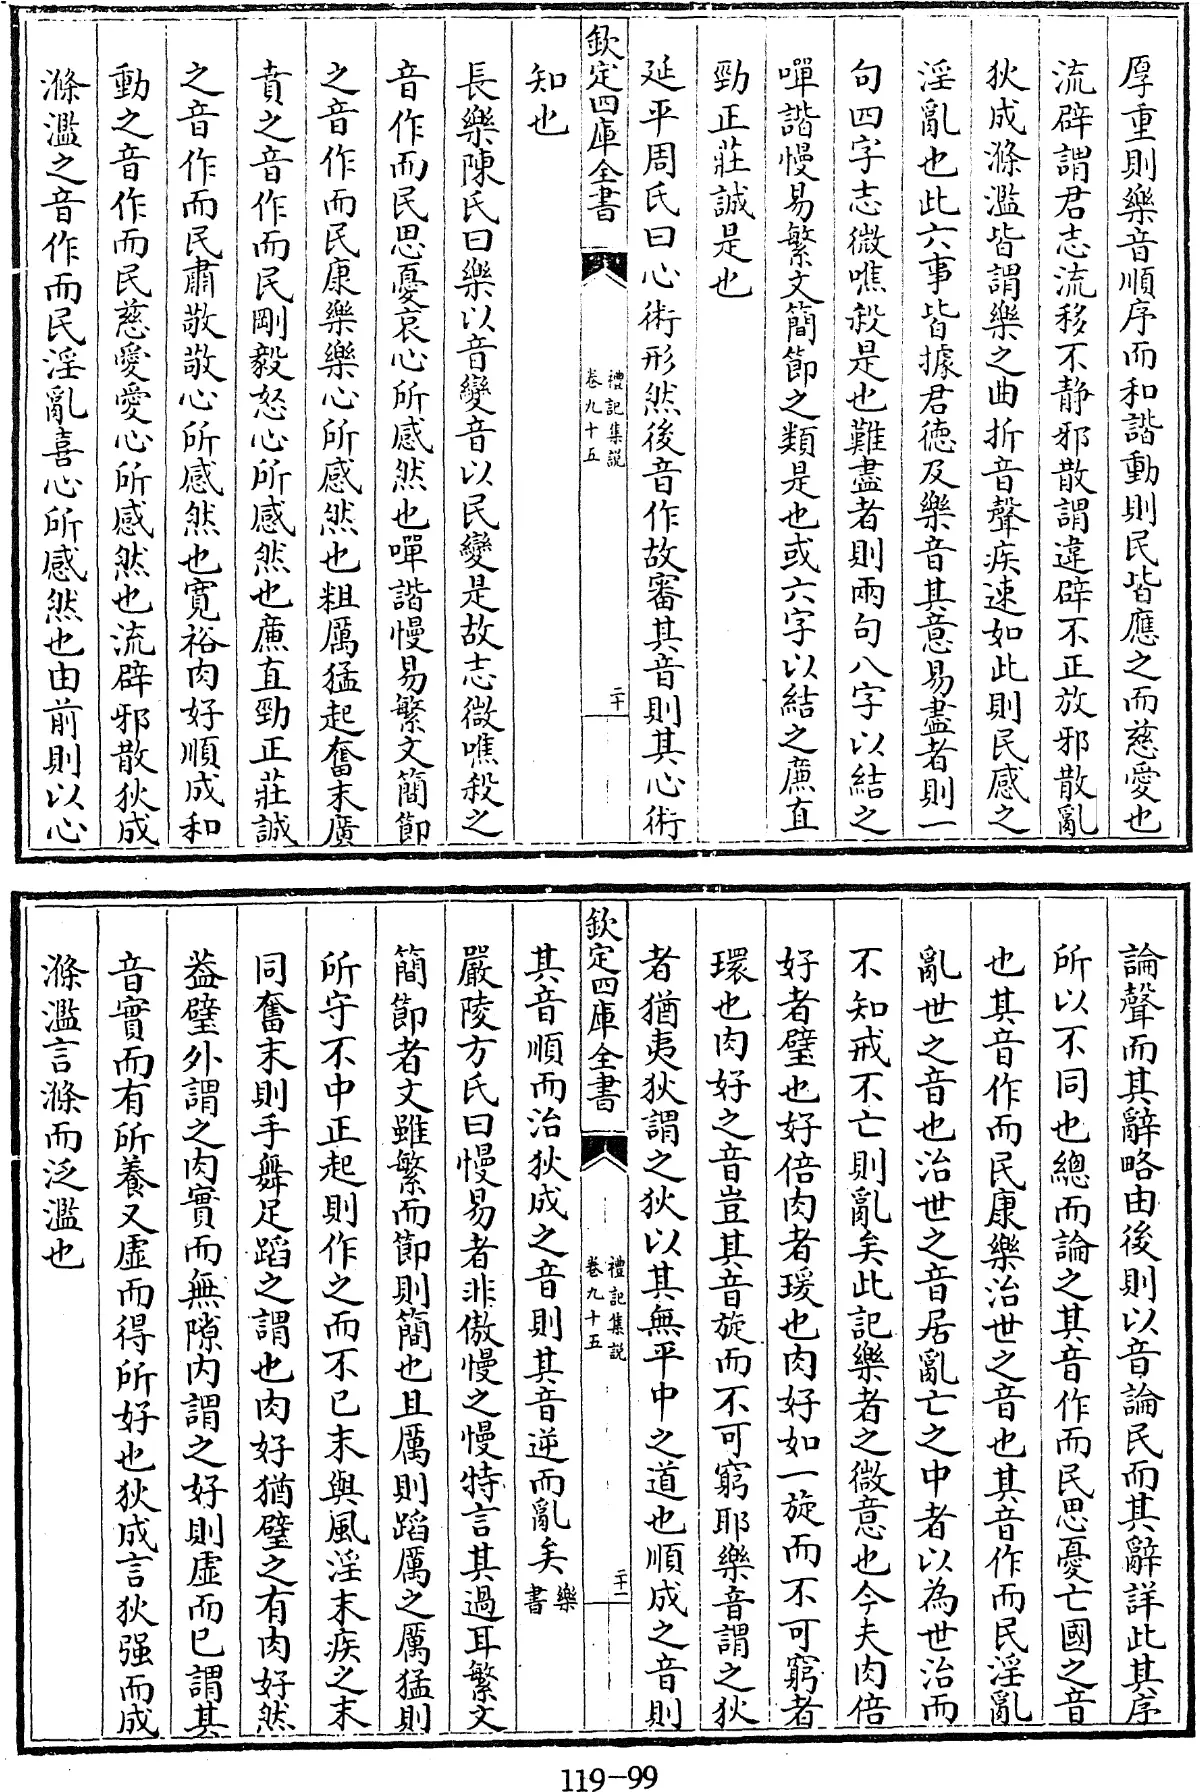 厚重則樂音順序而和諧動則民皆應之而慈愛也
流辟謂君志流移不静邪散謂違辟不正放邪散亂
狄成滌濫皆謂樂之曲折音聲疾速如此則民感之
淫亂也此六事皆據君徳及樂音其意易盡者則一
句四字志微噍殺是也難盡者則兩句八字以結之
嘽諧慢易繁文簡節之類是也或六字以結之亷直
勁正莊誠是也
延平周氏曰心術形然後音作故審其音則其心術
欽定四庫全書
禮記集説
卷九十五
二十
知也
長樂陳氏曰樂以音變音以民變是故志微噍殺之
音作而民思憂哀心所感然也嘽諧慢易繁文簡節
之音作而民康樂樂心所感然也粗厲猛起奮末廣
賁之音作而民剛毅怒心所感然也亷直勁正莊誠
之音作而民肅敬敬心所感然也寛裕肉好順成和
動之音作而民慈愛愛心所感然也流辟邪散狄成
滌濫之音作而民淫亂喜心所感然也由前則以心
論聲而其辭略由後則以音論民而其辭詳此其序
所以不同也總而論之其音作而民思憂亡國之音
也其音作而民康樂治世之音也其音作而民淫亂
亂世之音也治世之音居亂亡之中者以為世治而
不知戒不亡則亂矣此記樂者之微意也今夫肉倍
好者璧也好倍肉者瑗也肉好如一旋而不可窮者
環也肉好之音豈其音旋而不可窮耶樂音謂之狄
者猶夷狄謂之狄以其無平中之道也順成之音則
欽定四庫全書
禮記集説
卷九十五
二十一
其音順而治狄成之音則其音逆而亂矣樂書
嚴陵方氏曰慢易者非傲慢之慢特言其過耳繁文
簡節者文雖繁而節則簡也且厲則蹈厲之厲猛則
所守不中正起則作之而不已末與風淫末疾之末
同奮末則手舞足蹈之謂也肉好猶璧之有肉好然
葢璧外謂之肉實而無隙内謂之好則虚而已謂其
音實而有所養又虚而得所好也狄成言狄强而成
滌濫言滌而泛濫也
119-99